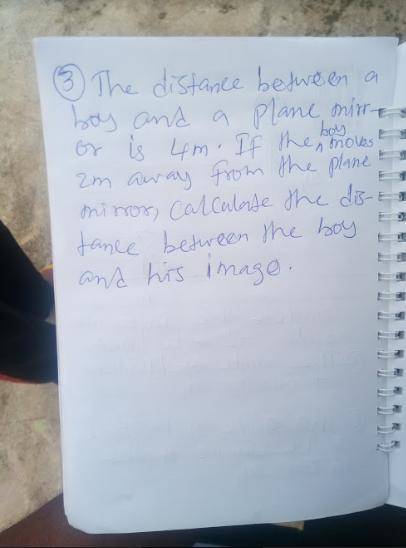 ③ The distance between a
boy and a plane mirr-
or is 4m. If the boy moves
2m away from the plane
mirror, calculate the dis-
tance between the boy
and his image.